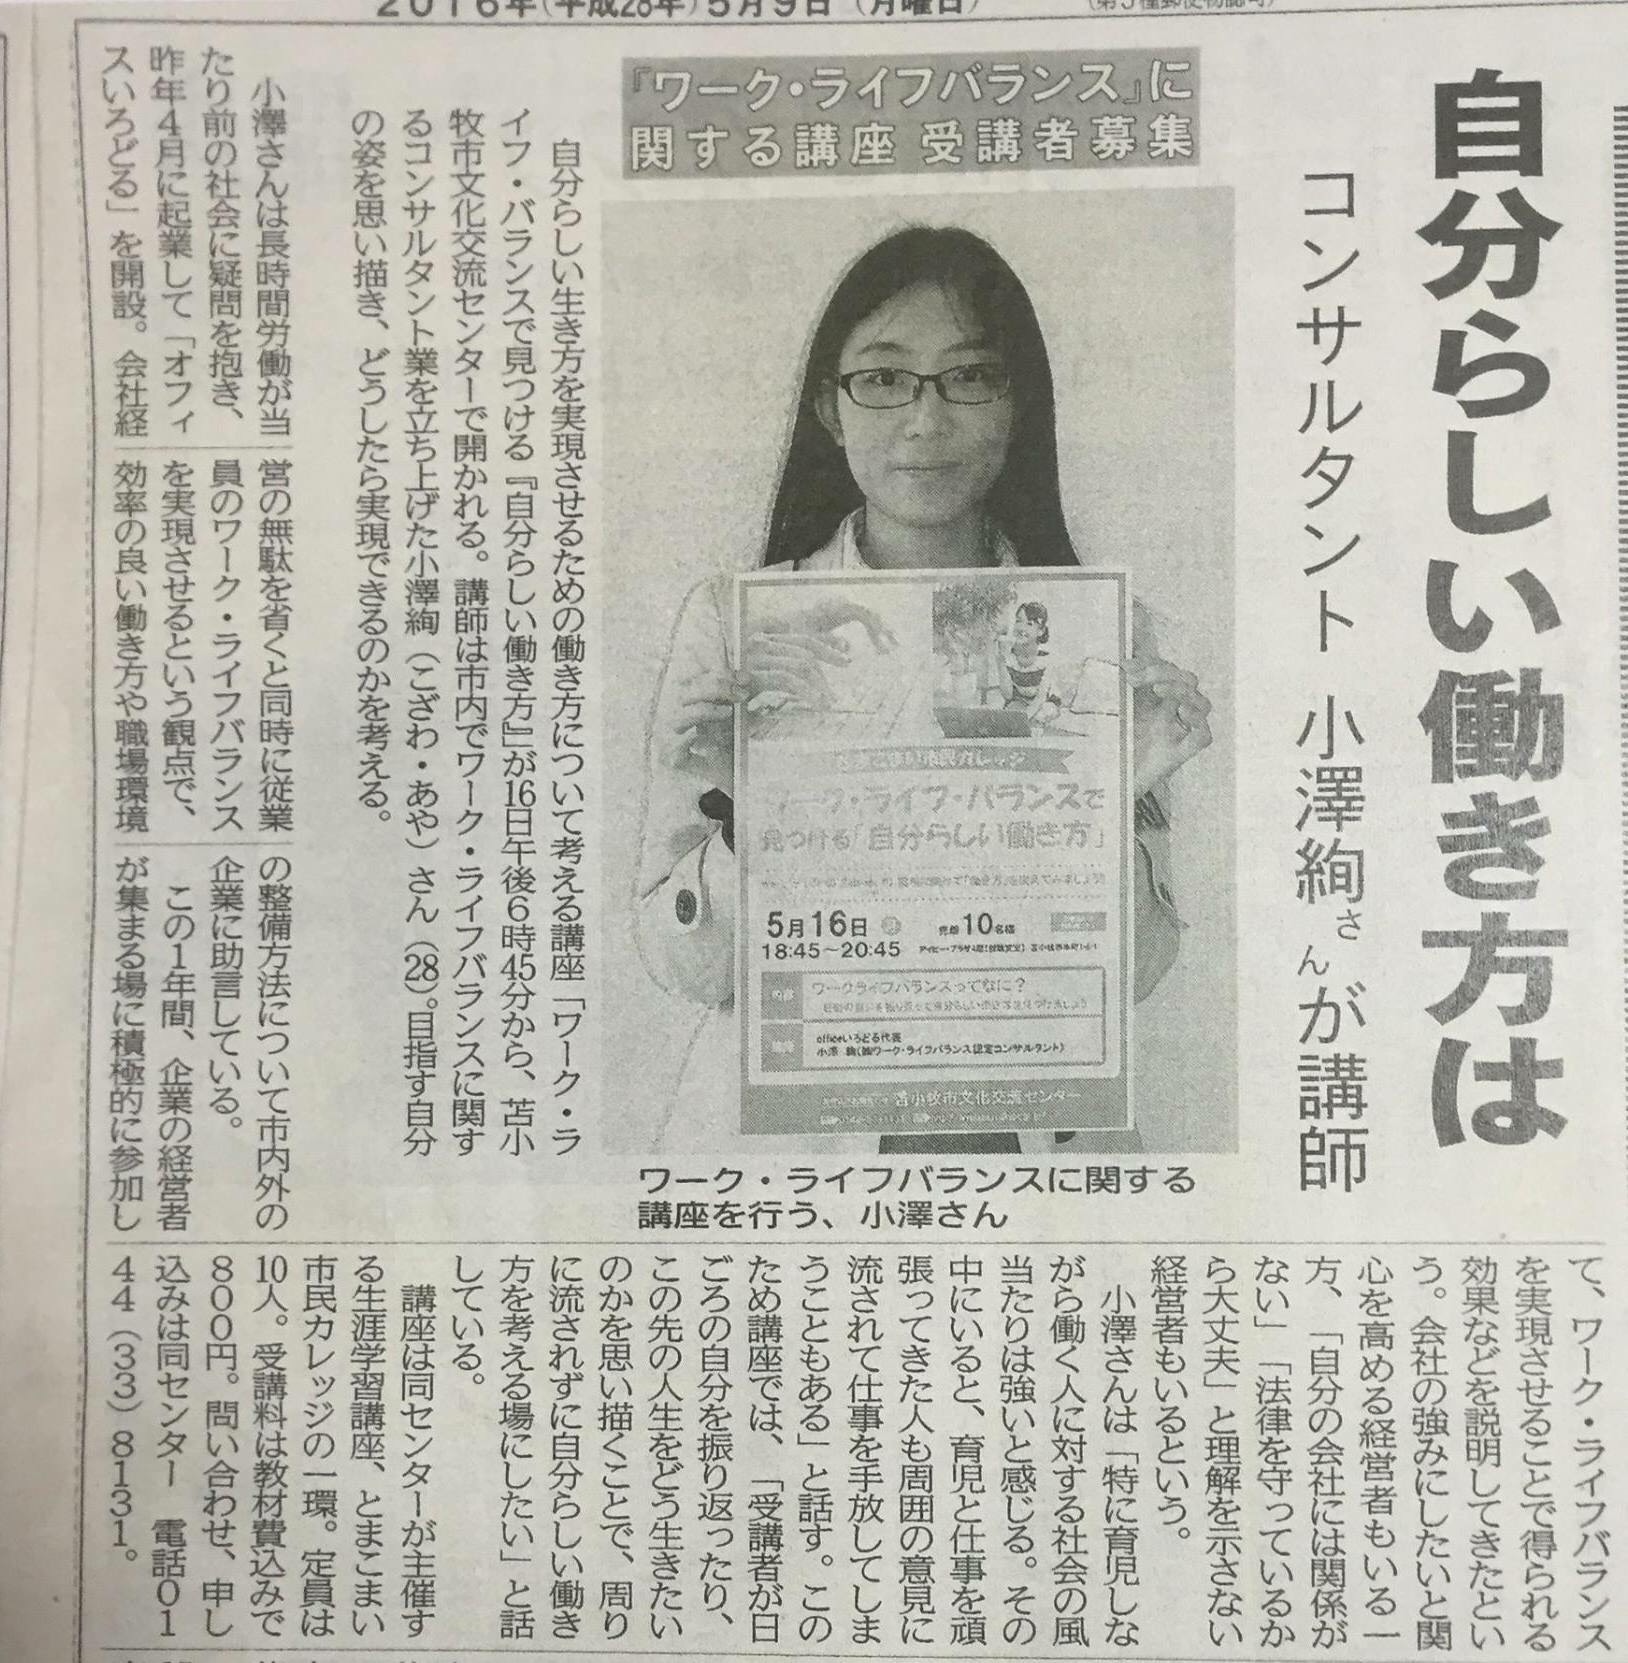 2016年(平成28年)5月9日(月曜日)
(第3種郵便物認可)
自分らしい働き方は
コンサルタント 小澤絢さんが講師
『ワーク・ライフバランス』に
関する講座 受講者募集
自分らしい生き方を実現させるための働き方について考える講座「ワーク・ラ
イフ・バランスで見つける『自分らしい働き方』」が16日午後6時45分から、苫小
牧市文化交流センターで開かれる。講師は市内でワーク・ライフバランスに関す
るコンサルタント業を立ち上げた小澤絢(こざわ・あや)さん(28)。目指す自分
の姿を思い描き、どうしたら実現できるのかを考える。
見つける「自分らしい働き方」
5月16日
10名様
18:45〜20:45
ワークライフバランスってなに?
officeいろどる代表
小澤 絢(㈱ワーク・ライフバランス認定コンサルタント)
苫小牧市文化交流センター
ワーク・ライフバランスに関する
講座を行う、小澤さん
小澤さんは長時間労働が当
たり前の社会に疑問を抱き、
昨年4月に起業して「オフィ
スいろどる」を開設。会社経
営の無駄を省くと同時に従業
員のワーク・ライフバランス
を実現させるという観点で、
効率の良い働き方や職場環境
の整備方法について市内外の
企業に助言している。
この1年間、企業の経営者
が集まる場に積極的に参加し
て、ワーク・ライフバランス
を実現させることで得られる
効果などを説明してきたとい
う。会社の強みにしたいと関
心を高める経営者もいる一
方、「自分の会社には関係が
ない」「法律を守っているか
ら大丈夫」と理解を示さない
経営者もいるという。
小澤さんは「特に育児しな
がら働く人に対する社会の風
当たりは強いと感じる。その
中にいると、育児と仕事を頑
張ってきた人も周囲の意見に
流されて仕事を手放してしま
うこともある」と話す。この
ため講座では、「受講者が日
ごろの自分を振り返ったり、
この先の人生をどう生きたい
のかを思い描くことで、周り
に流されずに自分らしい働き
方を考える場にしたい」と話
している。
講座は同センターが主催す
る生涯学習講座、とまこまい
市民カレッジの一環。定員は
10人。受講料は教材費込みで
800円。問い合わせ、申し
込みは同センター 電話01
44(33)8131。